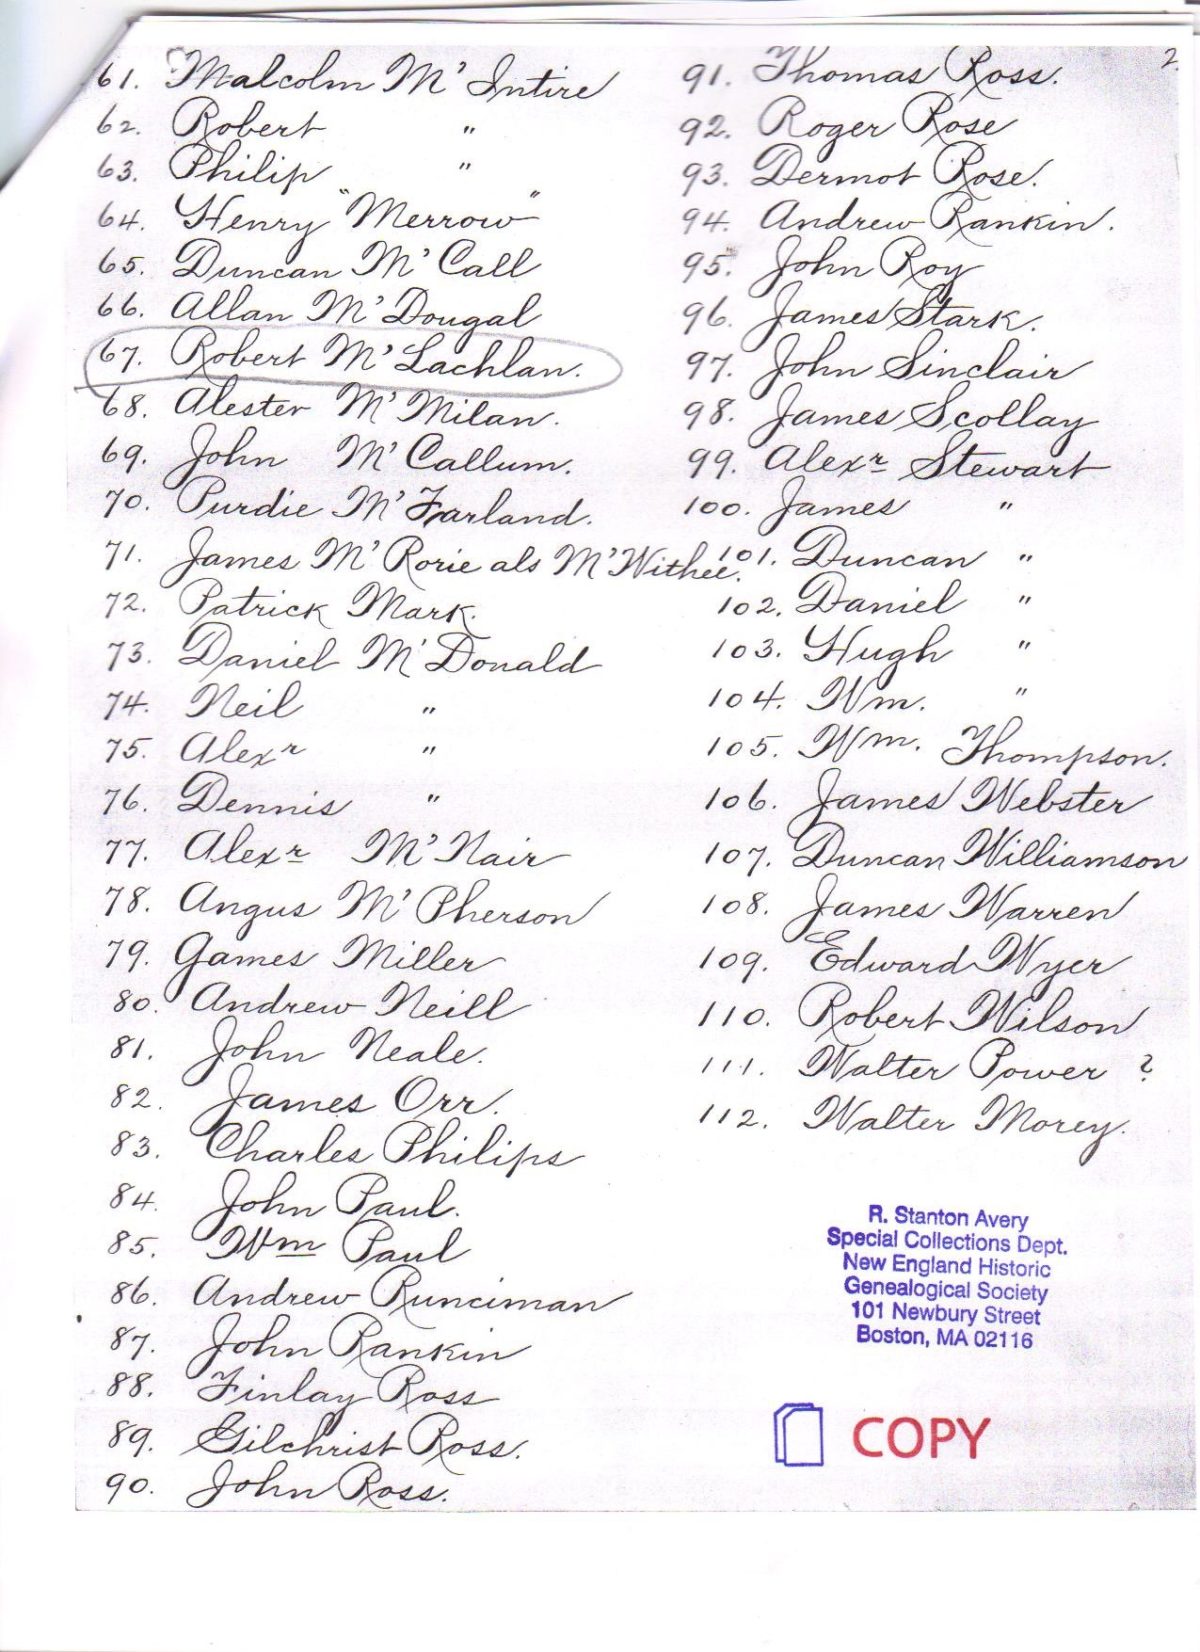 2.
61. Malcolm M' Intire
62. Robert "
63. Philip "
64. Henry "Merrow"
65. Duncan M' Call
66. Allan M' Dougal
67. Robert M' Lachlan.
68. Alester M' Milan.
69. John M' Callum.
70. Purdie M' Farland.
71. James M' Rorie als M' Withee.
72. Patrick Mark.
73. Daniel M' Donald
74. Neil "
75. Alexr "
76. Dennis "
77. Alexr M' Nair
78. Angus M' Pherson
79. James Miller
80. Andrew Neill
81. John Neale.
82. James Orr.
83. Charles Philips
84. John Paul.
85. Wm Paul
86. Andrew Runciman
87. John Rankin
88. Finlay Ross
89. Gilchrist Ross.
90. John Ross.
91. Thomas Ross.
92. Roger Rose
93. Dermot Rose.
94. Andrew Rankin.
95. John Roy
96. James Stark.
97. John Sinclair
98. James Scollay
99. Alexr Stewart
100. James "
101. Duncan "
102. Daniel "
103. Hugh "
104. Wm. "
105. Wm. Thompson.
106. James Webster
107. Duncan Williamson
108. James Warren
109. Edward Wyer
110. Robert Wilson
111. Walter Power ?
112. Walter Morey.
R. Stanton Avery
Special Collections Dept.
New England Historic
Genealogical Society
101 Newbury Street
Boston, MA 02116
COPY